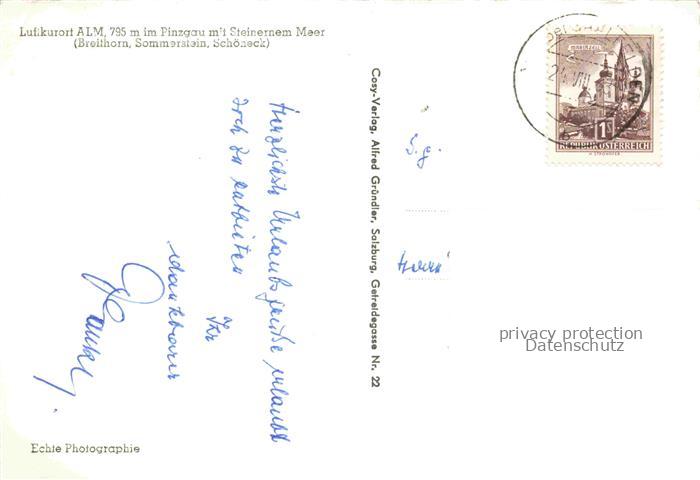 Luftkurort ALM, 795 m im Pinzgau mit Steinernem Meer
(Breithorn, Sommerstein, Schöneck)
Herzlichste Urlaubsgrüße erlaubt
sich zu entbieten
Ihr
dankbarer
Cosy-Verlag, Alfred Gründler, Salzburg, Getreidegasse Nr. 22
MARIAZELL
1S
REPUBLIK ÖSTERREICH
Herrn
privacy protection
Datenschutz
Echte Photographie